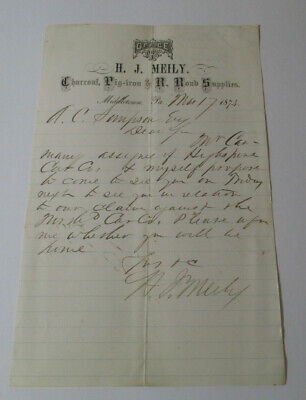 OFFICE
H. J. MEILY.
Charcoal, Pig-iron & R. Road Supplies.
Middletown Pa. Mar 17 1873
A. C. Simpson Esq
Dear Sir
Mr Cas-
many assignee of Highspire
& myself propose
to come to see you on
night to see you in relation
to our claim against the
Please
me whether you will be
home
Yrs &c
H. J. Meily